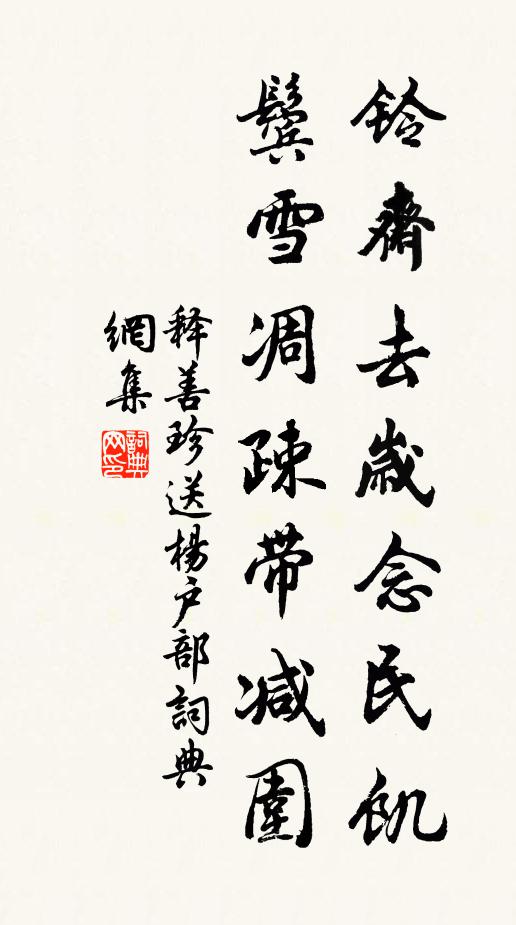 鈴齋去歲念民飢
鬢雪凋疎帶減圍
释善珍送楊户部詞典
網集
詞典網印